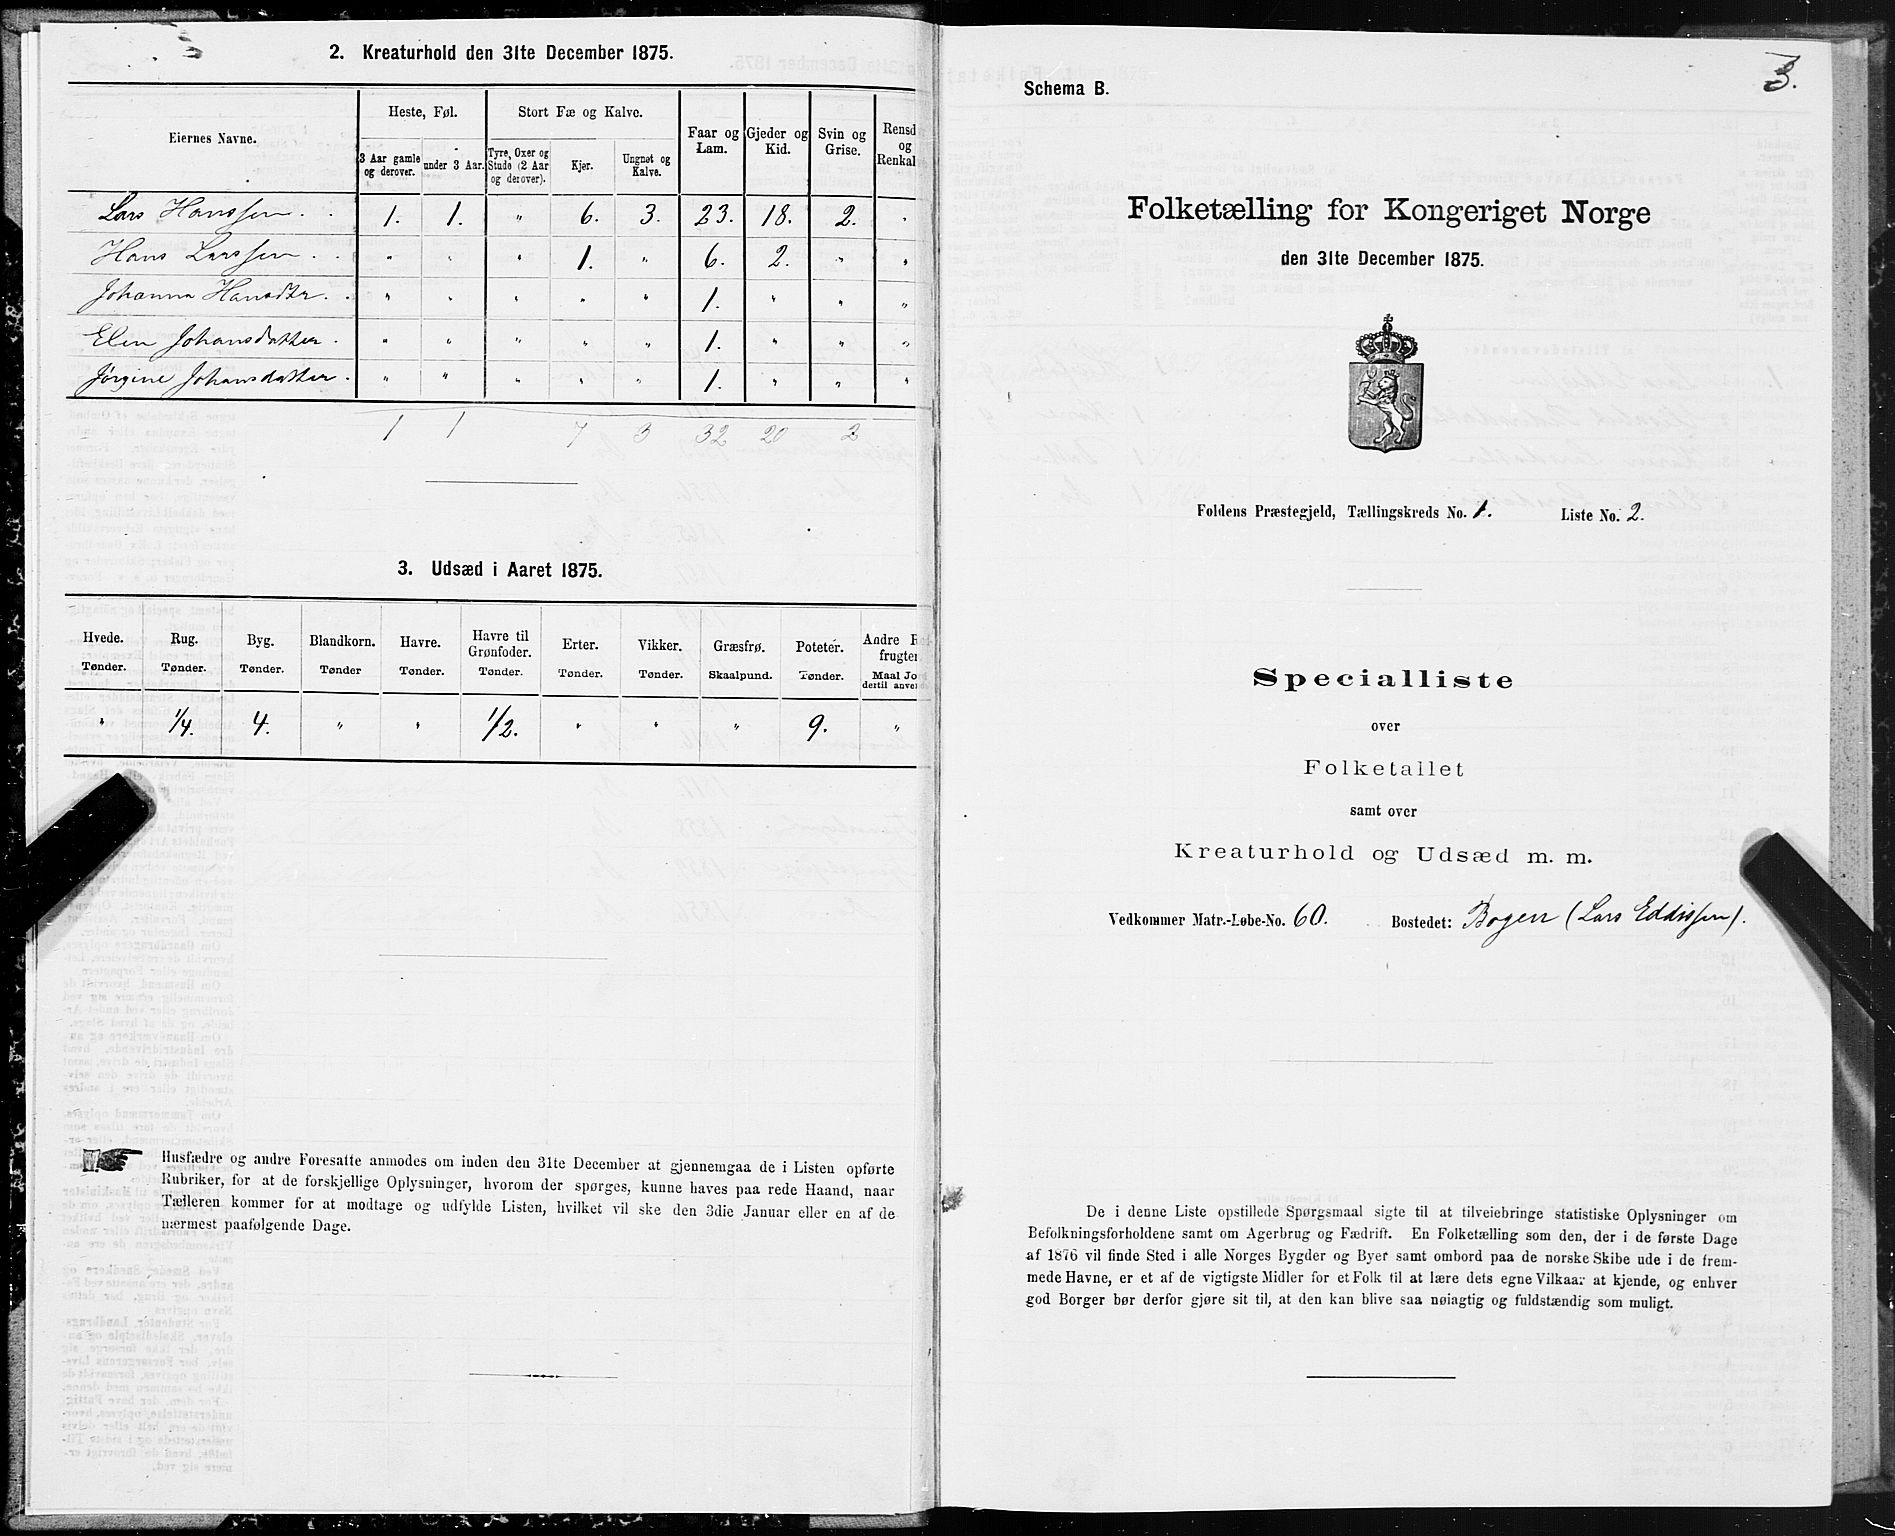 2. Kreaturhold den 31te December 1875.
Eiernes Navne.
Heste, Føl.
Stort Fæ og Kalve.
Faar og Lam.
Gjeder og Kid.
Svin og Grise.
Rensd og Renkal
3 Aar gamle og derover.
under 3 Aar.
Tyre, Oxer og Stude (2 Aar og derover).
Kjer.
Ungnøt og Kalve.
Lars Hanssen . . 1. 1. " 6. 3. 23. 18. 2. "
Hans Larssen . . " " " 1. " 6. 2. " "
Johanna Hansdtr. . " " " " " 1. " " "
Elen Johansdatter . " " " " " 1. " " "
Jørgine Johansdatter . " " " " " 1. " " "
1 1 7 3 32 20 2
3. Udsæd i Aaret 1875.
Hvede. Rug. Byg. Blandkorn. Havre. Havre til Grønfoder. Erter. Vikker. Græsfrø. Poteter. Andre frugter
Tønder. Tønder. Tønder. Tønder Tønder. Tønder. Tønder. Tønder. Skaalpund. Tønder. Maal Jo dertil anve
" 1/4. 4. " " 1/2. " " " 9. "
Husfædre og andre Foresatte anmodes om inden den 31te December at gjennemgaa de i Listen opførte
Rubriker, for at de forskjellige Oplysninger, hvorom der spørges, kunne haves paa rede Haand, naar
Tælleren kommer for at modtage og udfylde Listen, hvilket vil ske den 3die Januar eller en af de
nærmest paafølgende Dage.
3.
Schema B.
Folketælling for Kongeriget Norge
den 31te December 1875.
Foldens Præstegjeld, Tællingskreds No. 1. Liste No. 2.
Specialliste
over
Folketallet
samt over
Kreaturhold og Udsæd m. m.
Vedkommer Matr.-Løbe-No. 60. Bostedet: Bogen (Lars Eddissen).
De i denne Liste opstillede Spørgsmaal sigte til at tilveiebringe statistiske Oplysninger om
Befolkningsforholdene samt om Agerbrug og Fædrift. En Folketælling som den, der i de første Dage
af 1876 vil finde Sted i alle Norges Bygder og Byer samt ombord paa de norske Skibe ude i de frem-
mede Havne, er et af de vigtigste Midler for et Folk til at lære dets egne Vilkaar at kjende, og enhver
god Borger bør derfor gjøre sit til, at den kan blive saa nøiagtig og fuldstændig som muligt.